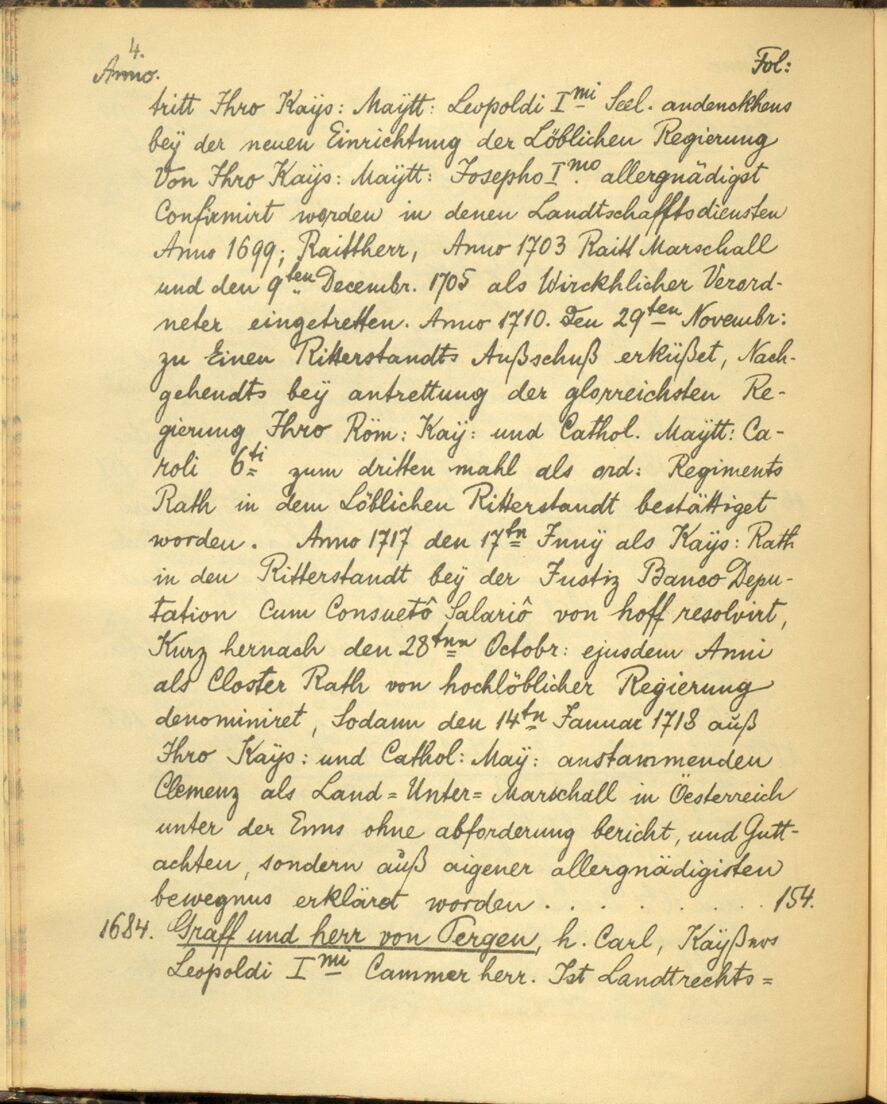 4.
Anno. Fol:
tritt Ihro Kaÿs: Maÿtt: Leopoldi I mi Seel. andenckhens
beÿ der neuen Einrichtung der Löblichen Regierung
Von Ihro Kaÿs: Maÿtt: Josepho I mo allergnädigst
Confirmirt worden in denen Landtschafftsdiensten
Anno 1699; Raittherr, Anno 1703 Raitt Marschall
und den 9ten Decembr. 1705 als Wirckhlicher Verord-
neter eingetretten. Anno 1710. Den 29ten Novembr:
zu Einen Ritterstandts Außschuß erküßet, Nach-
gehendts beÿ antrettung der glorreichsten Re-
gierung Ihro Röm: Kaÿ: und Cathol. Maÿtt: Ca-
roli 6ti zum dritten mahl als ord: Regiments
Rath in dem Löblichen Ritterstandt bestättiget
worden. Anno 1717 den 17tn Junÿ als Kaÿs: Rath
in den Ritterstandt beÿ der Justiz Banco Depu-
tation Cum Consuetô Salariô von hoff resolvirt,
Kurz hernach den 28tnn Octobr: ejusdem Anni
als Closter Rath von hochlöblicher Regierung
denominiret, Sodann den 14tn Januar 1718 auß
Ihro Kaÿs: und Cathol: Maÿ: anstammenden
Clemenz als Land=Unter=Marschall in Oesterreich
unter der Enns ohne abforderung bericht, und Gutt-
achten, sondern auß aigener allergnädigisten
bewegnus erkläret worden . . . . . . . . 154.
1684. Graff und herr von Pergen, h. Carl, Kaÿßers
Leopoldi I mi Cammerherr. Ist Landtrechts=